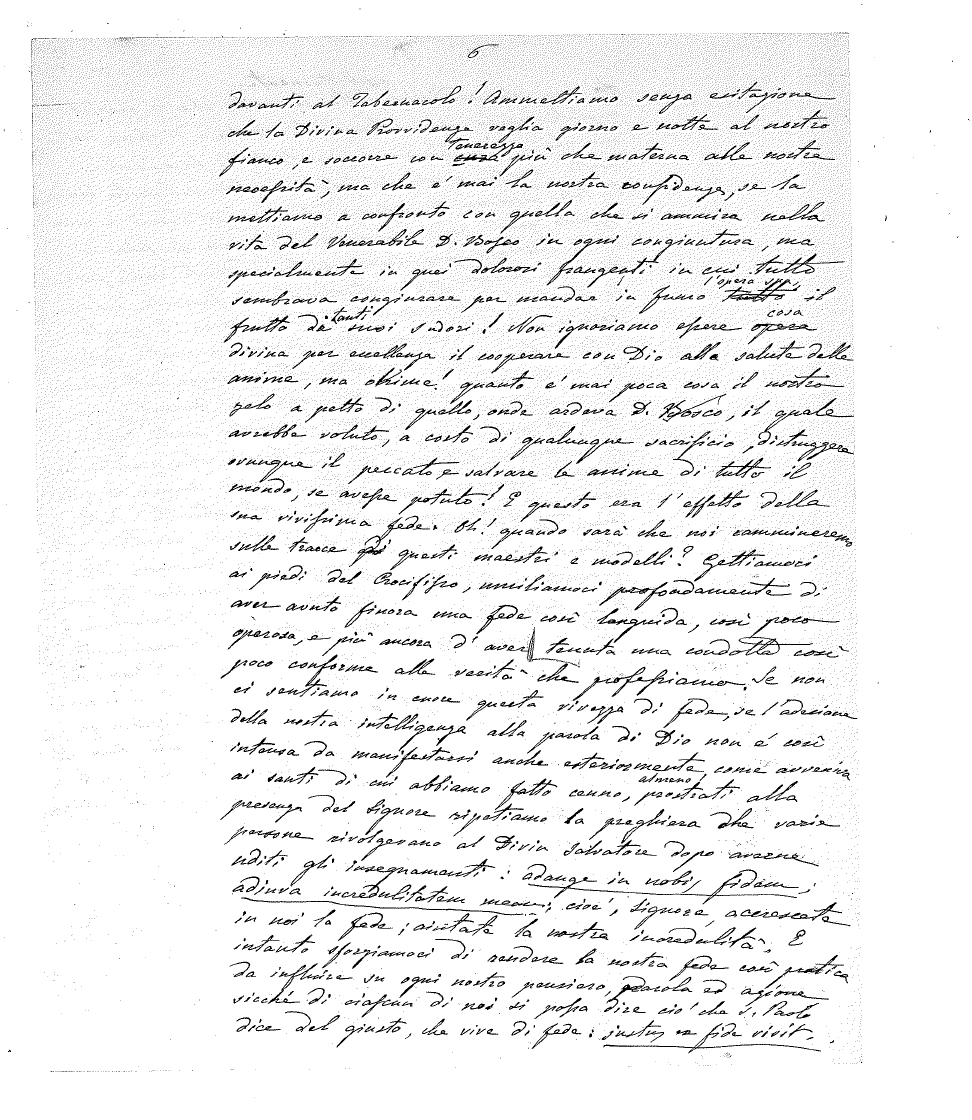 6
davanti al Tabernacolo! Ammettiamo senza esitazione
che la Divina Provvidenza veglia giorno e notte al nostro
tenerezza
fianco, e soccorre con cura più che materna alle nostre
necessità, ma che é mai la nostra confidenza, se la
mettiamo a confronto con quella che si ammira nella
vita del Venerabile D. Bosco in ogni congiuntura, ma
specialmente in quei dolorosi frangenti in cui tutto
l'opera sua,
sembrava congiurare per mandar in fumo tutto il
tanti cosa
frutto de' suoi sudori! Non ignoriamo essere opera
divina per eccellenza il cooperare con Dio alla salute delle
anime, ma ohime! quanto é mai poca cosa il nostro
zelo a petto di quello, onde ardeva D. Bosco, il quale
avrebbe voluto, a costo di qualunque sacrificio, distruggere
ovunque il peccato e salvare le anime di tutto il
mondo, se avesse potuto! E questo era l'effetto della
sua vivissima fede. Oh! quando sarà che noi cammineremo
sulle tracce di questi maestri e modelli? Gettiamoci
ai piedi del Crocifisso, umiliamoci profondamente di
aver avuto finora una fede così languida, così poco
operosa, e più ancora d'aver tenuta una condotta così
poco conforme alle verità che professiamo. Se non
ci sentiamo in cuore questa vivezza di fede, se l'adesione
della nostra intelligenza alla parola di Dio non é così
intensa da manifestarsi anche esteriormente, come avveniva
almeno
ai santi di cui abbiamo fatto cenno, prostrati alla
presenza del Signore ripetiamo la preghiera che varie
persone rivolgevano al Divin Salvatore dopo averne
uditi gli insegnamenti: adauge in nobis fidem;
adiuva incredulitatem meam; cioé, Signore, accrescete
in noi la fede; aiutate la nostra incredulità. E
intanto sforziamoci di rendere la nostra fede così pratica
da influire su ogni nostro pensiero, parola ed azione
sicché di ciascun di noi si possa dire ciò che S. Paolo
dice del giusto, che vive di fede: justus ex fide vivit.